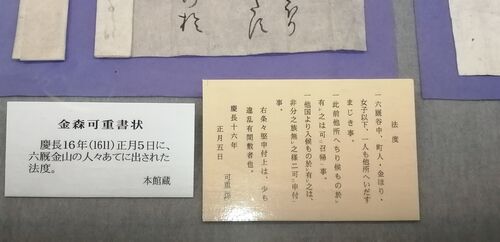 金森可重書状
慶長16年(1611)正月5日に、
六厩金山の人々あてに出された
法度。
本館蔵
法度
一六厩谷中、町人・金ほり・
女子以下、一人も他所へいだす
まじき事。
一此前他所へちり候もの於
有之は可召帰事。
一他国より入候もの於有之は、
非分之族無之様ニ可申付
事。
右条々堅申付上は、少も
違乱有間敷者也。
慶長十六年
正月五日
可重